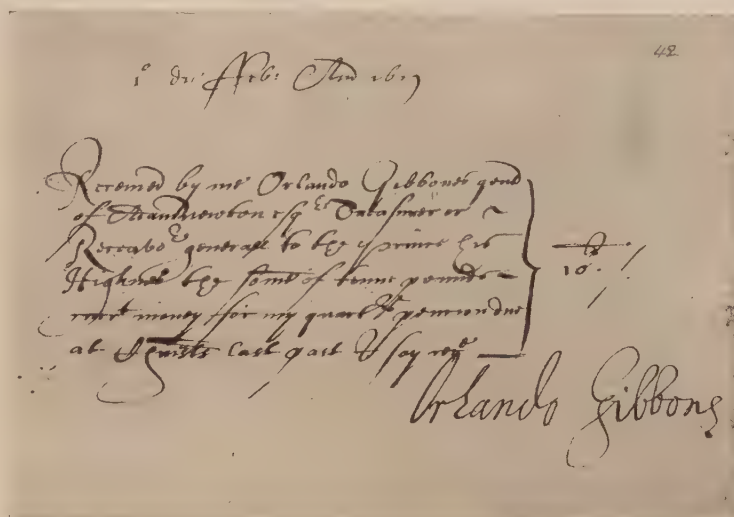 42
1° die ffeb: Ano 1617
Receiued by me Orlando Gibbones gent
of Adam Newton esqr Treasurer &
Receavor generall to the Prince his
Highnes the some of tenne pounds
money for my quarters pencion due
at last past I say recd
10
Orlando Gibbons